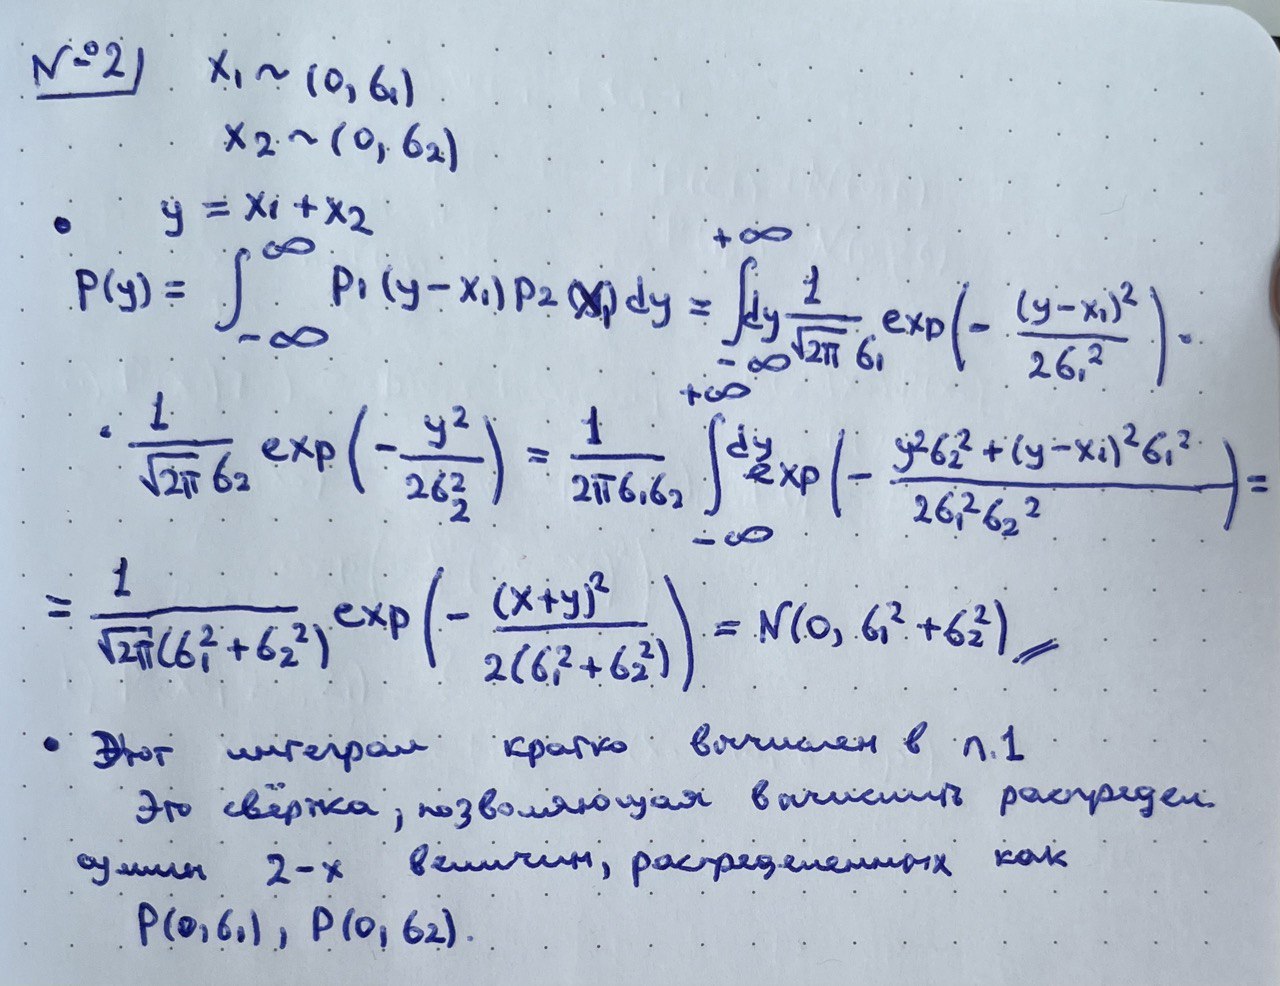 №2) x₁ ~ (0, σ₁)
x₂ ~ (0, σ₂)
• y = x₁ + x₂
P(y) = ∫_{-∞}^{∞} P₁(y-x₁) P₂(x₁) dy = ∫_{-∞}^{+∞} dy 1/(√2π σ₁) exp(- (y-x₁)²/(2σ₁²)) ·
· 1/(√2π σ₂) exp(- y²/(2σ₂²)) = 1/(2πσ₁σ₂) ∫_{-∞}^{+∞} dy exp(- (y²σ₂² + (y-x₁)²σ₁²)/(2σ₁²σ₂²)) =
= 1/(√2π(σ₁²+σ₂²)) exp(- (x+y)²/(2(σ₁²+σ₂²))) = N(0, σ₁²+σ₂²)
• Этот интеграл кратко вычислен в п.1
Это свёртка, позволяющая вычислить распредел.
суммы 2-х величин, распределенных как
P(0,σ₁), P(0,σ₂).